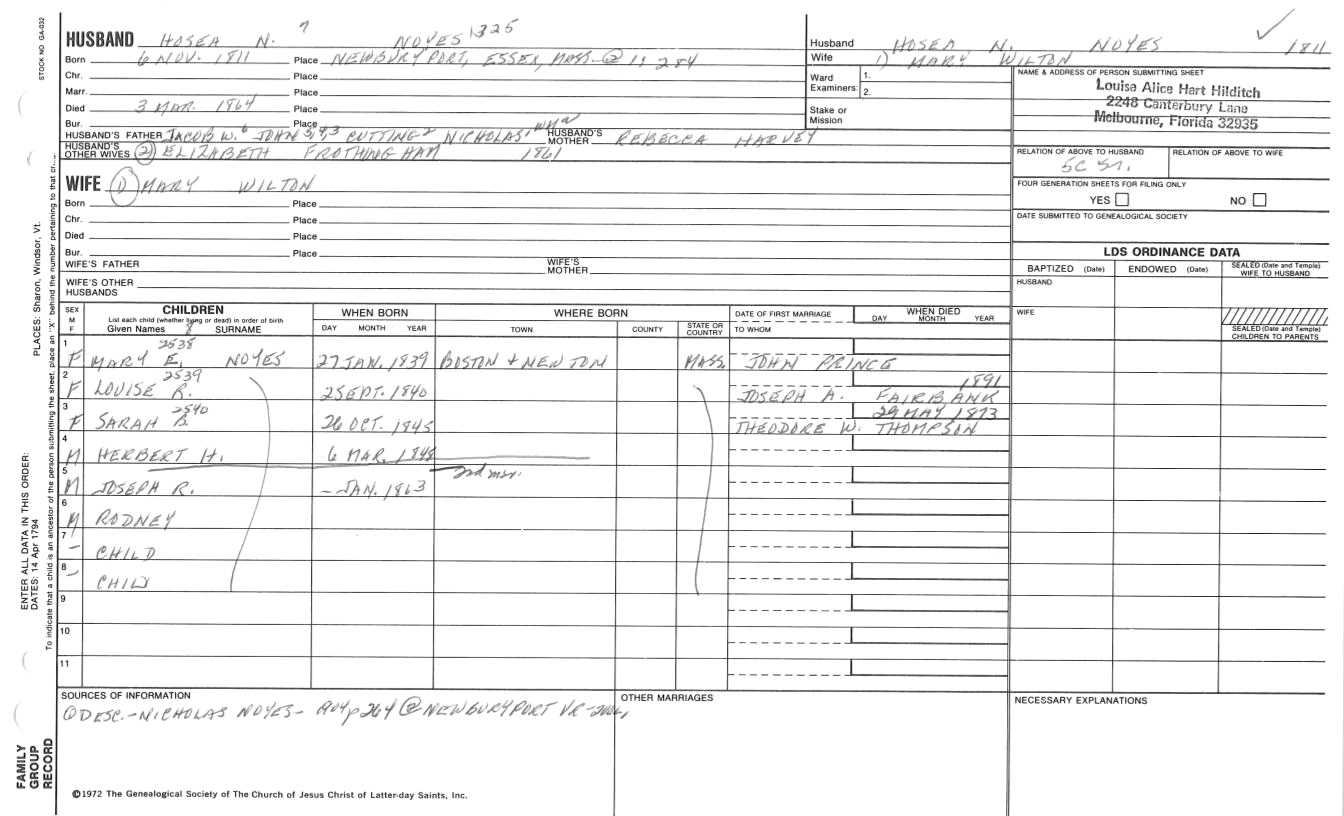 STOCK NO. GA-032
HUSBAND HOSEA N. 7 NOYES 1325
Born 6 NOV. 1811 Place NEWBURYPORT, ESSEX, MASS. @ 1: 284
Chr. Place
Marr. Place
Died 3 MAR. 1864 Place
Bur. Place
HUSBAND'S FATHER JACOB W.6 JOHN 5,4,3 CUTTING2 NICHOLAS1 HUSBAND'S MOTHER REBECCA HARVEY
HUSBAND'S OTHER WIVES (2) ELIZABETH FROTHINGHAM 1861
WIFE (1) MARY WILTON
Born Place
Chr. Place
Died Place
Bur. Place
WIFE'S FATHER WIFE'S MOTHER
WIFE'S OTHER HUSBANDS
Husband HOSEA N. NOYES 1811
Wife 1) MARY WILTON
Ward Examiners: 1.
2.
Stake or Mission
NAME & ADDRESS OF PERSON SUBMITTING SHEET
Louise Alice Hart Hilditch
2248 Canterbury Lane
Melbourne, Florida 32935
RELATION OF ABOVE TO HUSBAND RELATION OF ABOVE TO WIFE
5C
FOUR GENERATION SHEETS FOR FILING ONLY
YES NO
DATE SUBMITTED TO GENEALOGICAL SOCIETY
LDS ORDINANCE DATA
BAPTIZED (Date) ENDOWED (Date) SEALED (Date and Temple) WIFE TO HUSBAND
HUSBAND
WIFE
SEALED (Date and Temple) CHILDREN TO PARENTS
SEX M F
CHILDREN
List each child (whether living or dead) in order of birth
Given Names 8 SURNAME
WHEN BORN
DAY MONTH YEAR
WHERE BORN
TOWN COUNTY STATE OR COUNTRY
DATE OF FIRST MARRIAGE
TO WHOM
WHEN DIED
DAY MONTH YEAR
1 2538
F MARY E. NOYES 27 JAN. 1839 BOSTON + NEWTON MASS. JOHN PRINCE
2 2539 1891
F LOUISE R. 2 SEPT. 1840 JOSEPH A. FAIRBANK
3 2540 29 MAY 1873
F SARAH B. 26 OCT. 1845 THEODORE W. THOMPSON
4
M HERBERT H. 6 MAR. 1848
5 2nd mar.
M JOSEPH R. - JAN. 1863
6
M RODNEY
7
- CHILD
8
- CHILD
9
10
11
SOURCES OF INFORMATION
① DESC.-NICHOLAS NOYES- 1904 p264 @ NEWBURYPORT VR-
OTHER MARRIAGES
NECESSARY EXPLANATIONS
©1972 The Genealogical Society of The Church of Jesus Christ of Latter-day Saints, Inc.
FAMILY GROUP RECORD
ENTER ALL DATA IN THIS ORDER:
DATES: 14 Apr 1794
PLACES: Sharon, Windsor, Vt.
To indicate that a child is an ancestor of the person submitting the sheet, place an "X" behind the number pertaining to that